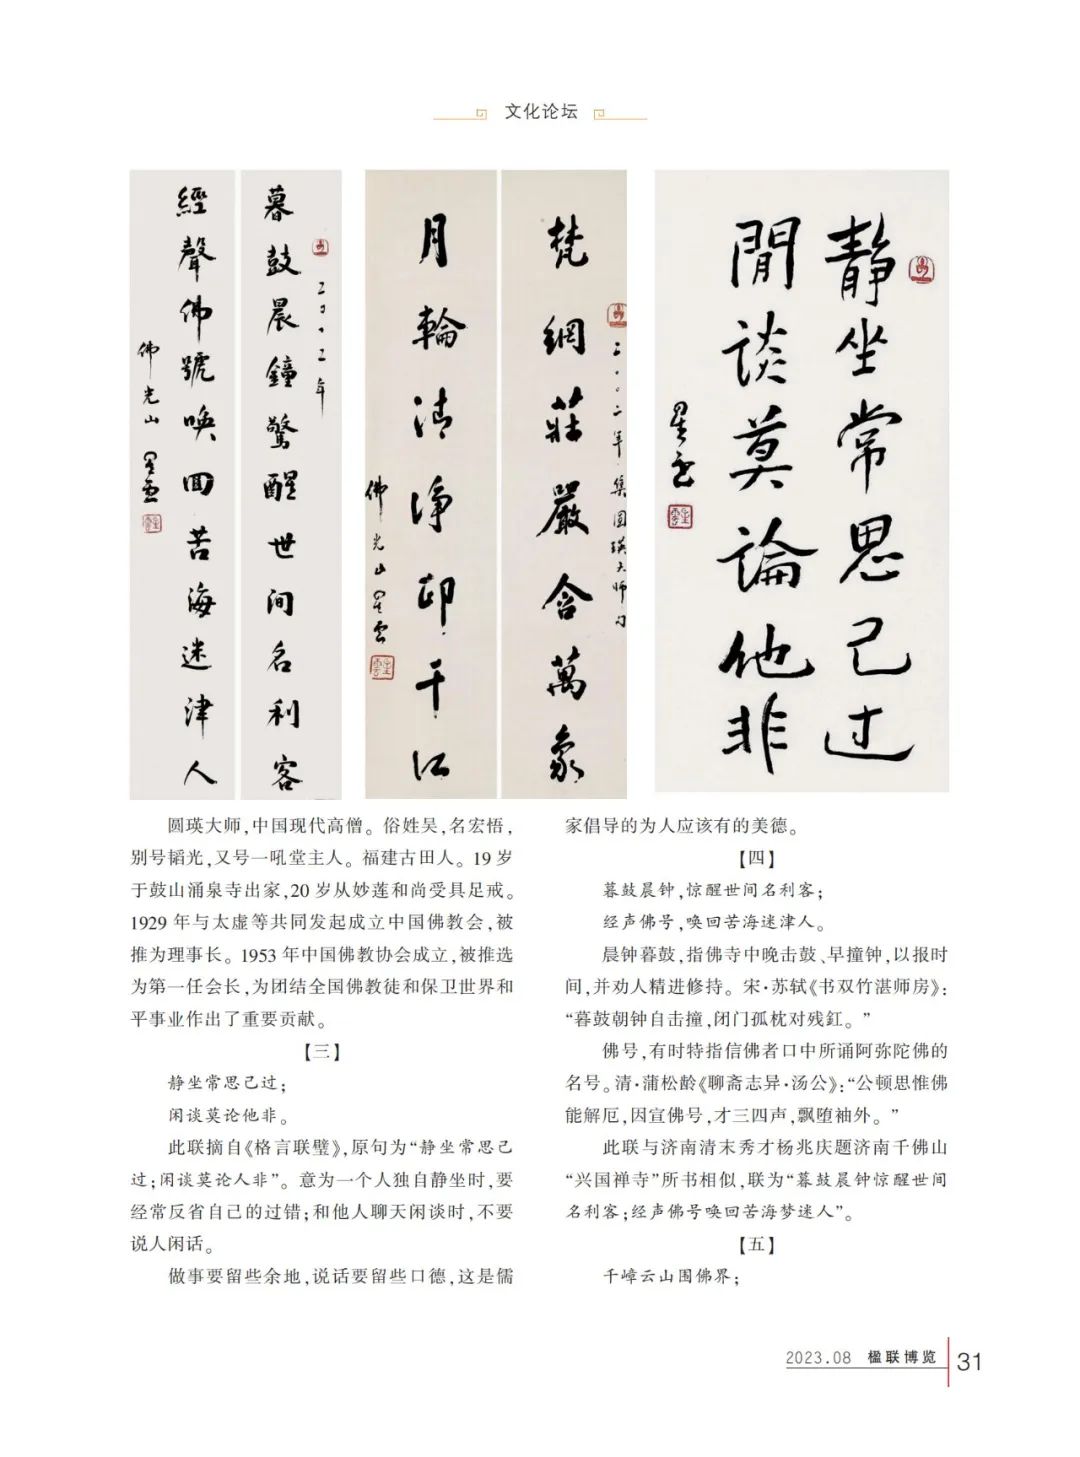 文化论坛
暮鼓晨鐘驚醒世间名利客
經聲佛號唤回苦海迷津人
佛光山
梵網莊嚴含萬象
二〇〇二年集圆瑛大师句
月輪清净印千江
佛光山星雲
静坐常思己过
閒談莫論他非
星云
圆瑛大师,中国现代高僧。俗姓吴,名宏悟,
别号韬光,又号一吼堂主人。福建古田人。19 岁
于鼓山涌泉寺出家,20 岁从妙莲和尚受具足戒。
1929 年与太虚等共同发起成立中国佛教会,被
推为理事长。1953 年中国佛教协会成立,被推选
为第一任会长,为团结全国佛教徒和保卫世界和
平事业作出了重要贡献。
【三】
静坐常思己过;
闲谈莫论他非。
此联摘自《格言联璧》,原句为“静坐常思己
过;闲谈莫论人非”。意为一个人独自静坐时,要
经常反省自己的过错;和他人聊天闲谈时,不要
说人闲话。
做事要留些余地,说话要留些口德,这是儒
家倡导的为人应该有的美德。
【四】
暮鼓晨钟,惊醒世间名利客;
经声佛号,唤回苦海迷津人。
晨钟暮鼓,指佛寺中晚击鼓、早撞钟,以报时
间,并劝人精进修持。宋·苏轼《书双竹湛师房》:
“暮鼓朝钟自击撞,闭门孤枕对残釭。”
佛号,有时特指信佛者口中所诵阿弥陀佛的
名号。清·蒲松龄《聊斋志异·汤公》:“公顿思惟佛
能解厄,因宣佛号,才三四声,飘堕袖外。”
此联与济南清末秀才杨兆庆题济南千佛山
“兴国禅寺”所书相似,联为“暮鼓晨钟惊醒世间
名利客;经声佛号唤回苦海梦迷人”。
【五】
千嶂云山围佛界;
2023.08 楹联博览 31